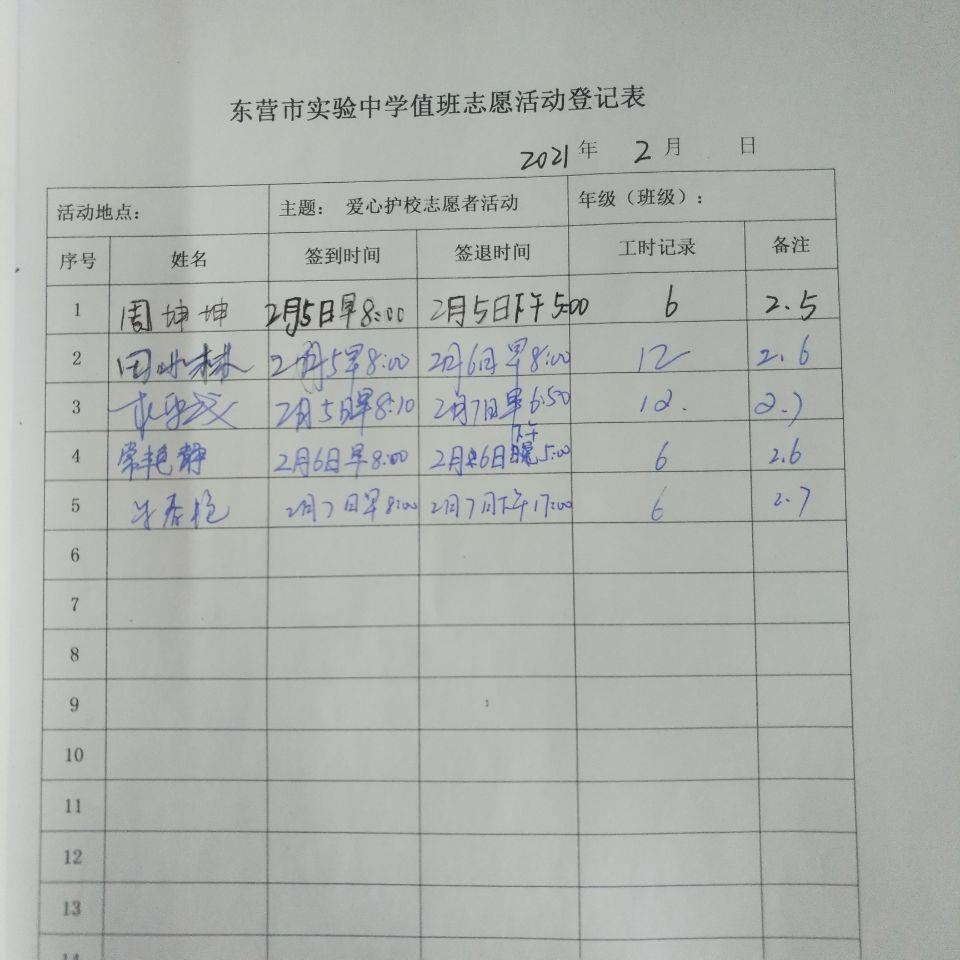 东营市实验中学值班志愿活动登记表
2021年 2月 日
活动地点： 主题： 爱心护校志愿者活动 年级（班级）：
序号 姓名 签到时间 签退时间 工时记录 备注
1 周坤坤 2月5日早8:00 2月5日下午5:00 6 2.5
2 田 林 2月5早8:00 2月6日早8:00 12 2.6
3 2月5日早8:10 2月7日早6:50 12. 2.7
下午
4 常艳静 2月6日早8:00 2月6日 5:00 6 2.6
5 2月7日早8:00 2月7日下午17:00 6 2.7
6
7
8
9
10
11
12
13
14